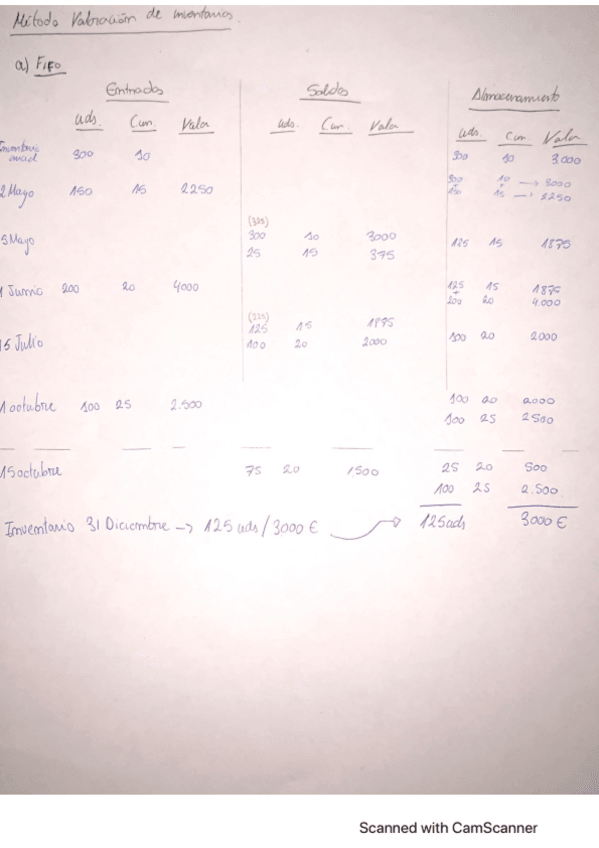 Método Valoración de inventarios.
a) FiFo
Entradas Salidas Almacenamiento
uds. Cun. Valor uds. Cun. Valor uds. Cun. Valor
Inventario inicial 300 10 300 10 3000
2 Mayo 150 15 2250 300 + 150 10 + 15 → 3000 → 2250
(325)
15 Mayo 300 10 3000 125 15 1875
25 15 375
1 Junio 200 20 4000 125 + 200 15 20 1875 4.000
(225)
125 15 1875
15 Julio 100 20 2000 100 20 2000
1 octubre 100 25 2.500 100 20 2000
100 25 2500
15 octubre 75 20 1,500 25 20 500
100 25 2.500
Inventario 31 Diciembre → 125 uds / 3000 € → 125 uds 3000 €
Scanned with CamScanner